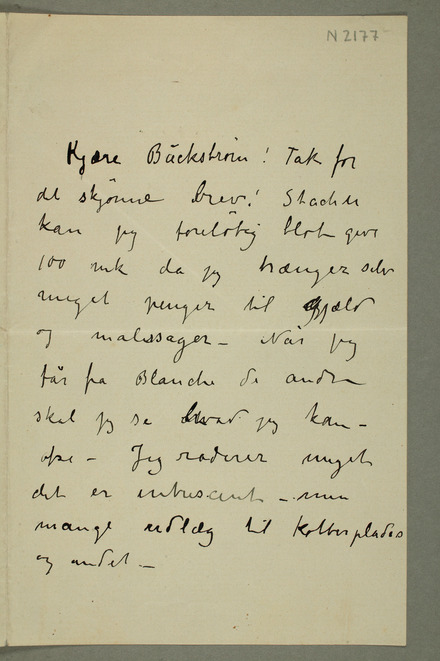 N 2177
Kjære Bäckström! Tak for
det skjönne brev! Stachu
kan jeg foreløbig blot give
100 mk da jeg trænger selv
meget penger til gjæld
og malesager – Når jeg
får fra Blanche de andre
skal jeg se hvad jeg kan –
– Jeg raderer meget
det er intresant – men
mange udlæg til Kobberplader
og andet –